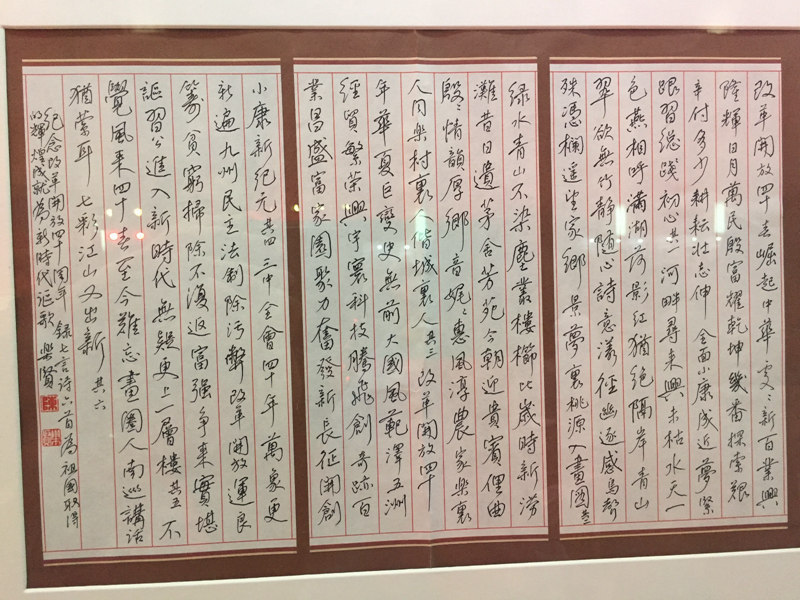 改革開放四十春崛起中華處〻新百業興
隆輝日月萬民殷富耀乾坤幾番探索艱
辛付多少耕耘壯志伸全面小康成近夢緊
跟習總踐初心其一河畔尋來興未枯水天一
色燕相呼滿湖荷影紅猶絕隔岸青山
翠欲無竹靜隨心詩意漾徑幽逐感鳥聲
殊憑欄遙望家鄉景夢裏桃源入畫圖其二
綠水青山不染塵叢樓櫛比歲時新澇
灘昔日遺茅舍芳苑今朝迎貴賓俚曲
殷〻情韻厚鄉音娓〻惠風淳農家樂裏
人同樂村裏人偕城裏人其三改革開放四十
年華夏巨變史無前大國風範澤五洲
經貿繁榮興宇寰科技騰飛創奇跡百
業昌盛富家園聚力奮發新長征開創
小康新紀元其四三中全會四十年萬象更
新遍九州民主法制除污弊改革開放運良
籌貧窮掃除不復返富強爭來實堪
謳習公進入新時代無疑更上一層樓其五不
覺風來四十春至今難忘畫圈人南巡講話
猶縈耳七彩江山又出新其六
紀念改革開放四十周年錄七言詩六首為祖國取得
的輝煌成就為新時代謳歌樂賢